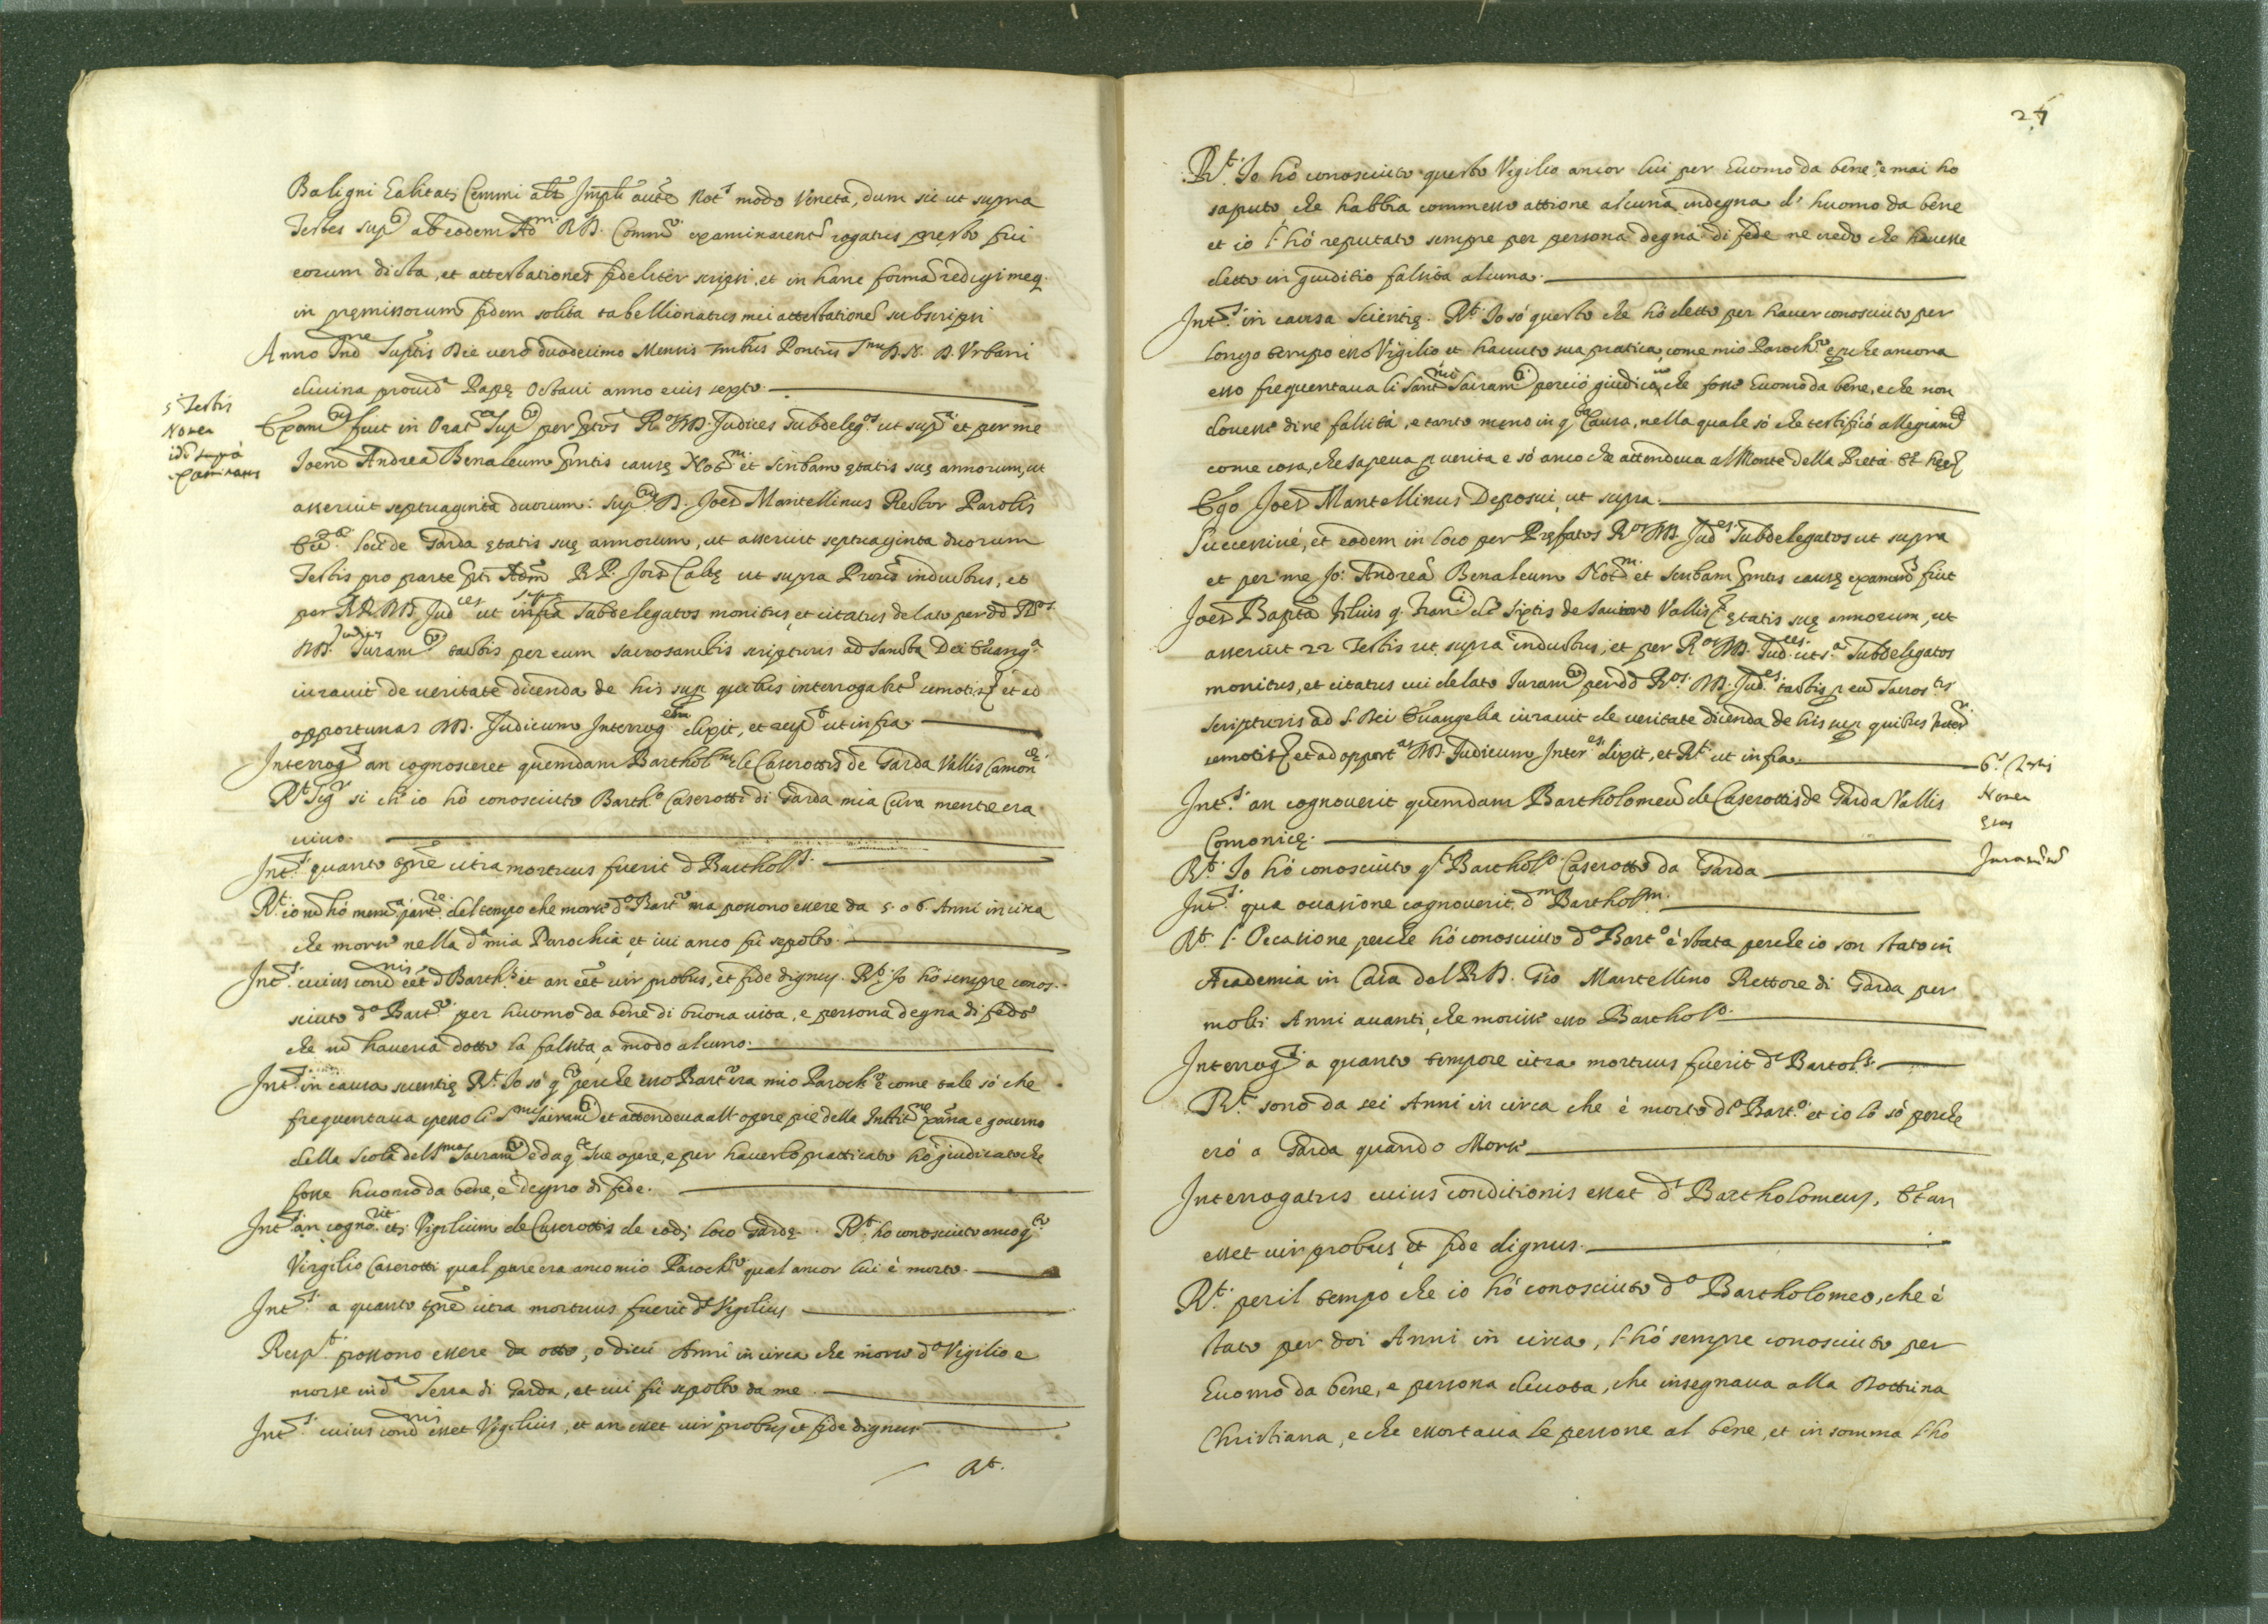 Baligni Calitatj Cemmi alt.s Imp.li auct.e Not.s modo Veneta, dum sic ut supra
Testes sup.ti ab eodem Adm. R.D. Comm.o examinarent.r rogatus presto fui
eorum dicta, et attestationes fideliter scripsi, et in hanc formã redegi meq.
in premissorum fidem solita tabellionatus mei attestatione subscripsi
Anno Ind.ne Suptis Die vero duodecimo Mensis Pontus S.mi D.N. D. Vrbani
divina provid.a Papę Octavi anno eius septo.
5 Testis
Nomen
id supra
examinatus
Exam.tus fuit in Orat.o Sup.to per ptos R.os DD. Judices Subdeleg.os ut sup.a et per me
Joem Andreã Benaleum pntis causę Not.m et scribam ętatis suę annorum, ut
asseruit septuaginta duorum: sup.tus D. Joes Mantellinus Rector Parolis
Ecc.ę loci de Garda ętatis suę annorum, ut asseruit septuaginta duorum
Testis pro parte pti Adm. R.P. Jois Calvę ut supra Proris inductus, et
per RR. DD. Jud.ces ut infra supra Subdelegatos monitus, et citatus delato per dd. R.os
DD. Judices Juram.to tactis per eum sacrosanctis scripturis ad sancta Dei Evang.a
iuravit de veritate dicenda de his sup. quibus interrogabit.r remotis et ad
opportunas DD. Judicum Interrog.es dixit, et resp.t ut infra
Interrog.s an cognosceret quemdam Barthol.m de Caserottis de Garda Vallis Camon.cę
R.t Sig.r si ch' io hò conosciuto Barth.o Caserotti di Garda mia Cura mentre era
vivo.
Int.s quanto tpre citra mortuus fuerit d. Barthol.s
R.t io nõ hò mem.a part.re del tempo che morse d.o Bart.o ma possono essere da 5. o 6 Anni in circa
che morse nella d.a mia Parochia, et ivi anco fù sepolto.
Int.s cuius cond.nis eet d. Barth.s et an eet vir probus, et fide dignus. R.t Io hò sempre conos-
sciuto d.o Bart.o per huomo da bene di buona vita, e persona degna di fede
che nõ haveria dotto la falsita, a modo alcuno.
Int.s in causa scientię R.t Io sò q.to perche esso Bart.o era mio Paroch.o e come tale sò che
frequentava spesso li S.mi Sacram.ti et attendeva all' opere pie della Instit.ne Xpana e governo
della Scola del S.mo Sacram.to e da q.te sue opere, e per haverlo pratticato hò giudicato che
fosse huomo da bene, e degno di fede.
Int.s an cogno.rit etj Vigilium de Caserottis de eodj loco Gardę. R.t ho conosciuto anco q.to
Virgilio Caserotti qual pure era anco mio Paroch.o qual ancor lui è morto.
Int.s a quanto tpre citra mortuus fuerit d. Vigilius
Resp.t possono essere da otto, o dieci Anni in circa che morse d.o Vigilio e
morse in d.a Terra di Garda, et ivi fù sepolto da me.
Int.s cuius cond.nis esset Vigilius, et an esset vir probus, et fide dignus
R.t
24
R.t Io hò conosciuto questo Vigilio ancor lui per Euomo da bene, e mai ho
saputo che habbia commesso attione alcuna indegna d' huomo da bene
et io l' hò reputato sempre per persona degna di fede ne credo che havesse
detto in giuditio falsità alcuna.
Int.s in causa scientię. R.t Io sò questo che hò detto per haver conosciuto per
longo tempo esso Vigilio, et havuto sua pratica, come mio Paroch.o e perche ancora
esso frequentava li Sant.mi Sacram.ti perciò giudico, che fosse Euomo da bene, e che non
dovesse dire falsità, e tanto meno in q.ta Causa, nella quale sò che testificò allegram.te
come cosa, che sapeva p verita e sò anco che attendeva al Monte della Pietà. Et
Ego Joes Mantellinus Deposui, ut supra.
Successivè, et eodem in loco per Pręfatos R.os DD. Jud.es Subdelegatos ut supra
et per me Jo: Andreã Benaleum Not.m et scribam pntis causę examin.s fuit
Joes Bapta Filius q. Fran.ci de Sixtis de Saviore Vallis ętatis suę annorum, ut
asseruit 22 Testis ut supra inductus, et per R.os DD. Jud.ces ut s.a Subdelegatos
monitus, et citatus cui delato Juram.to per dd. R.os DD. Jud.es tactis p eum Sacros.tis
scripturis ad S. Dei Evangelia iuravit de veritate dicenda de his sup. quibus
remotis et ad opport.as DD. Judicum Inter.es dixit, et R.t ut infra.
6.s Testis
Nomen
Etas
Juram.m
Int.s an cognoverit quemdam Bartholomeũ de Caserottis de Garda Vallis
Comonicę.
R.t Io hò conosciuto q.to Barthol.o Caserotto da Garda
Int.s qua occasione cognoverit d.m Barthol.m
R.t l' Occasione perche hò conosciuto d.o Bart.o è stata perche io son stato in
Academia in Casa del R.D. Gio Mantellino Rettore di Garda per
molti Anni avanti, che morisse esso Barthol.o
Interrog.s a quanto tempore citra mortuus fuerit d.s Bartol.s
R.t sono da sei Anni in circa che è morto d.o Bart.o et io lo sò perche
erò a Garda quando Morse
Interrogatus cuius conditionis esset d.s Bartholomeus, Et an
esset vir probus, et fide dignus.
R.t per il tempo che io hò conosciuto d.o Bartholomeo, che è
stato per doi Anni in circa, l' hò sempre conosciuto per
Euomo da bene, e persona devota, che insegnava alla Dottrina
Christiana, e che essortava le persone al bene, et in somma l' ho